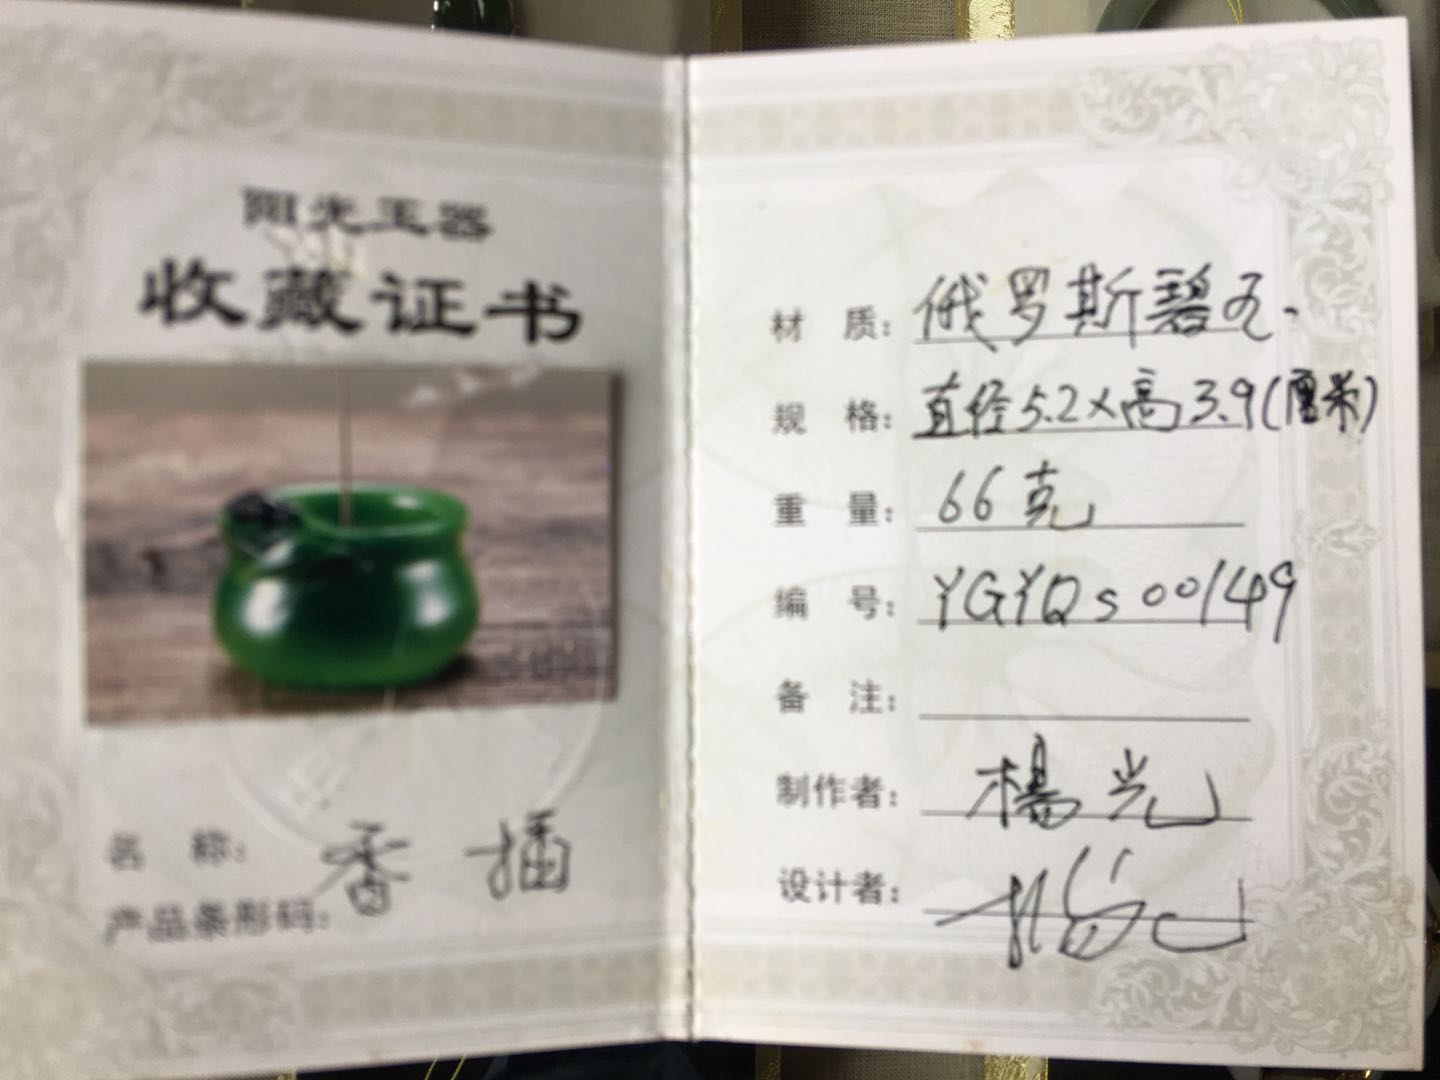 阳光玉器
收藏证书
名 称: 香 插
产品条形码:
材 质: 俄罗斯碧玉
规 格: 直径5.2×高3.9(厘米)
重 量: 66克
编 号: YGYQS00149
备 注:
制作者: 楊光
设计者: